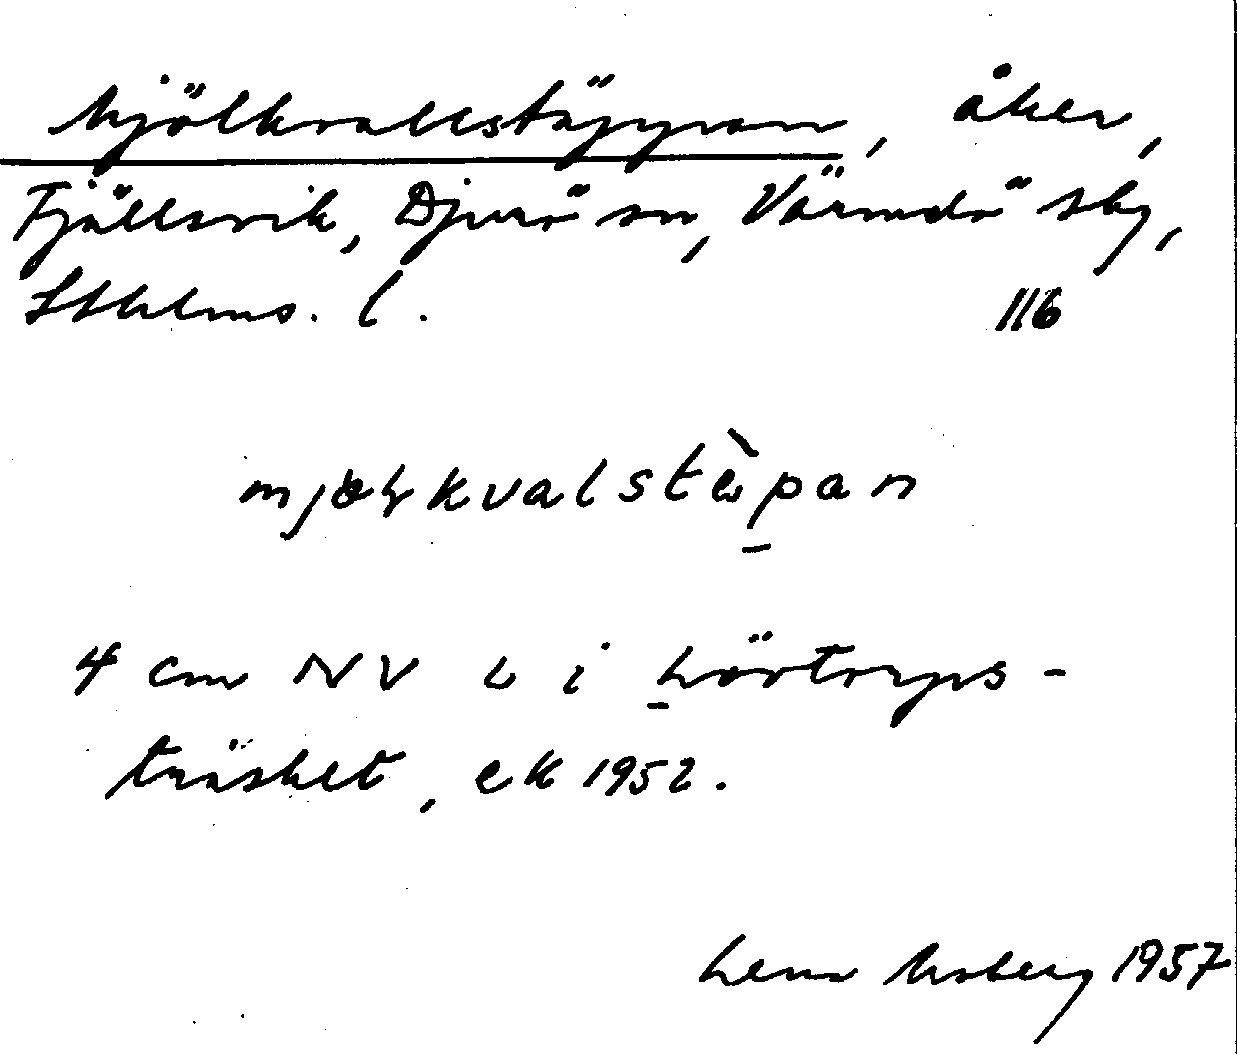 Mjölkvallstäppan, åker,
Fjällsvik, Djurö sn, Värmdö sky,
Sthlms. l. 116
4 cm NV L i Lövtorps-
träsket, ek 1952.
Lena Moberg 1957